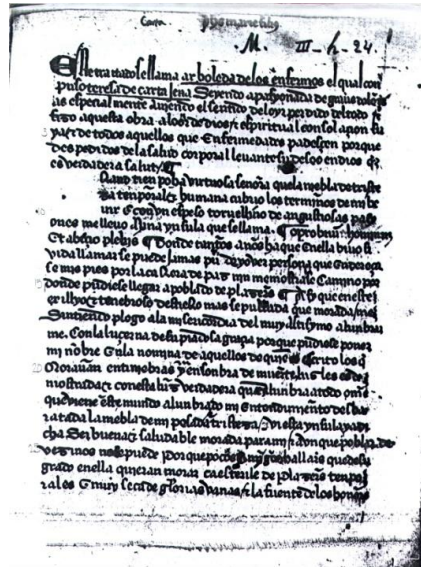 M. III-h-24.
Este tratado se llama arboleda de los enfermos el qual con
puso teresa de cartajena seyendo apasyonada de graues dolençi
as especial mente auiendo el sentido del oyr perdido del todo E
fizo aquesta obra a loor de dios e espiritual consolaçion su
ya e de todos aquellos que enfermedades padesçen porque
despedidos de la salud corporal leuante su deseo en dios q̃
es verdadera salut
tienpo ha virtuosa señora que la niebla de triste
za tenporal e humana cubrio los terminos de mi be
uir e con vn espeso toruellino de angustiosas pasy
ones me lleuo a vna ynsula que se llama oprobrium hominum
et abiecio plebis donde tantos años ha que en ella biuo si
vida llamar se puede jamas pude yo ver persona que endereçase
mis pies por la carrera de paz nin me mostrase camino por
donde pudiese llegar a poblado de plazeres Asy que en este
exillyo e tenebroso destierro mas sepultada que morada me
sintiendo plogo a la misericordia del muy altysymo alunbrar
me con la luçerna de su piadosa graçia porque pudiese poner
mi nonbre en la nomina de aquellos de quien es escrito los q̃
morauan en tinieblas y en sonbra de muerte luz les es de
mostrada e con esta luz verdadera que alunbra a todo omẽ
que viene este mundo alunbrado mi entendimiento desba
ratada la niebla de mi pesada tristeza vi esta ynsula ya di
cha ser buena e saludable morada para my E aunque poblar de
vezinos no se puede porque pocos
grado en ella quieran morar ca esterile de plazeres tenpo
rales e muy seca de glorias vanas e la fuente de los honores